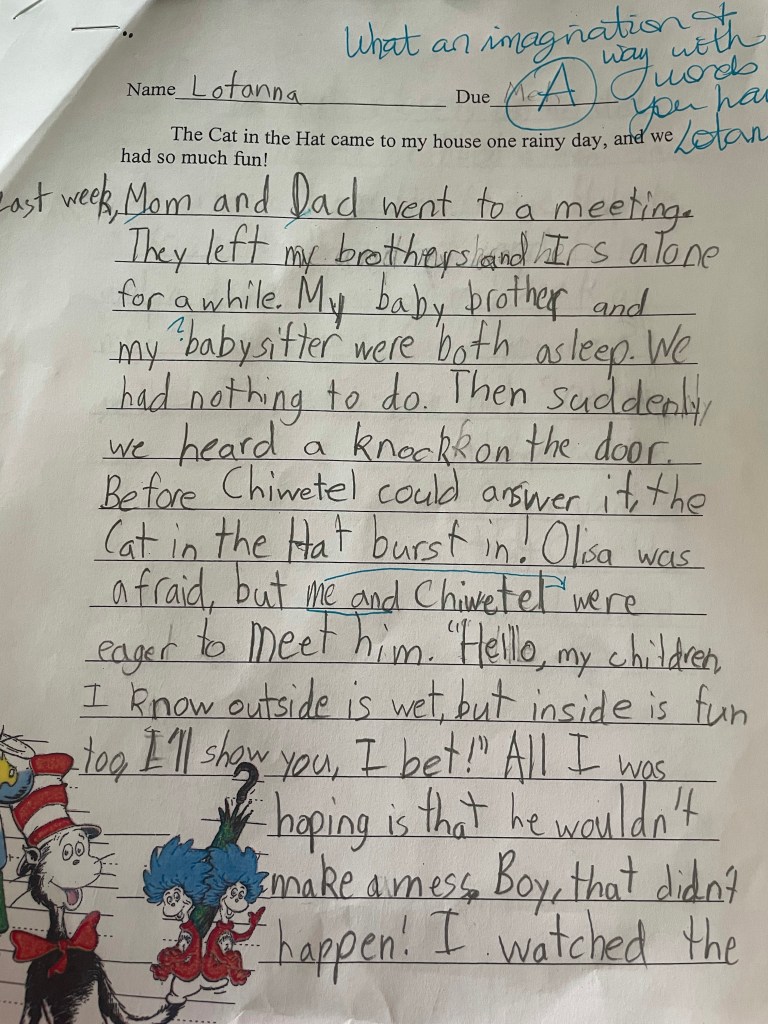 What an imagination &
way with
words
you ha
Name Lotanna Due A
Lotan
The Cat in the Hat came to my house one rainy day, and we
had so much fun!
Last week, Mom and Dad went to a meeting.
They left my brothers and I alone
for a while. My baby brother and
?
my babysitter were both asleep. We
had nothing to do. Then suddenly,
we heard a knock on the door.
Before Chiwetel could answer it, the
Cat in the Hat burst in! Olisa was
afraid, but me and Chiwetel were
eager to meet him. "Hello, my children,
I know outside is wet, but inside is fun
too, I'll show you, I bet!" All I was
hoping is that he wouldn't
make a mess. Boy, that didn't
happen! I watched the